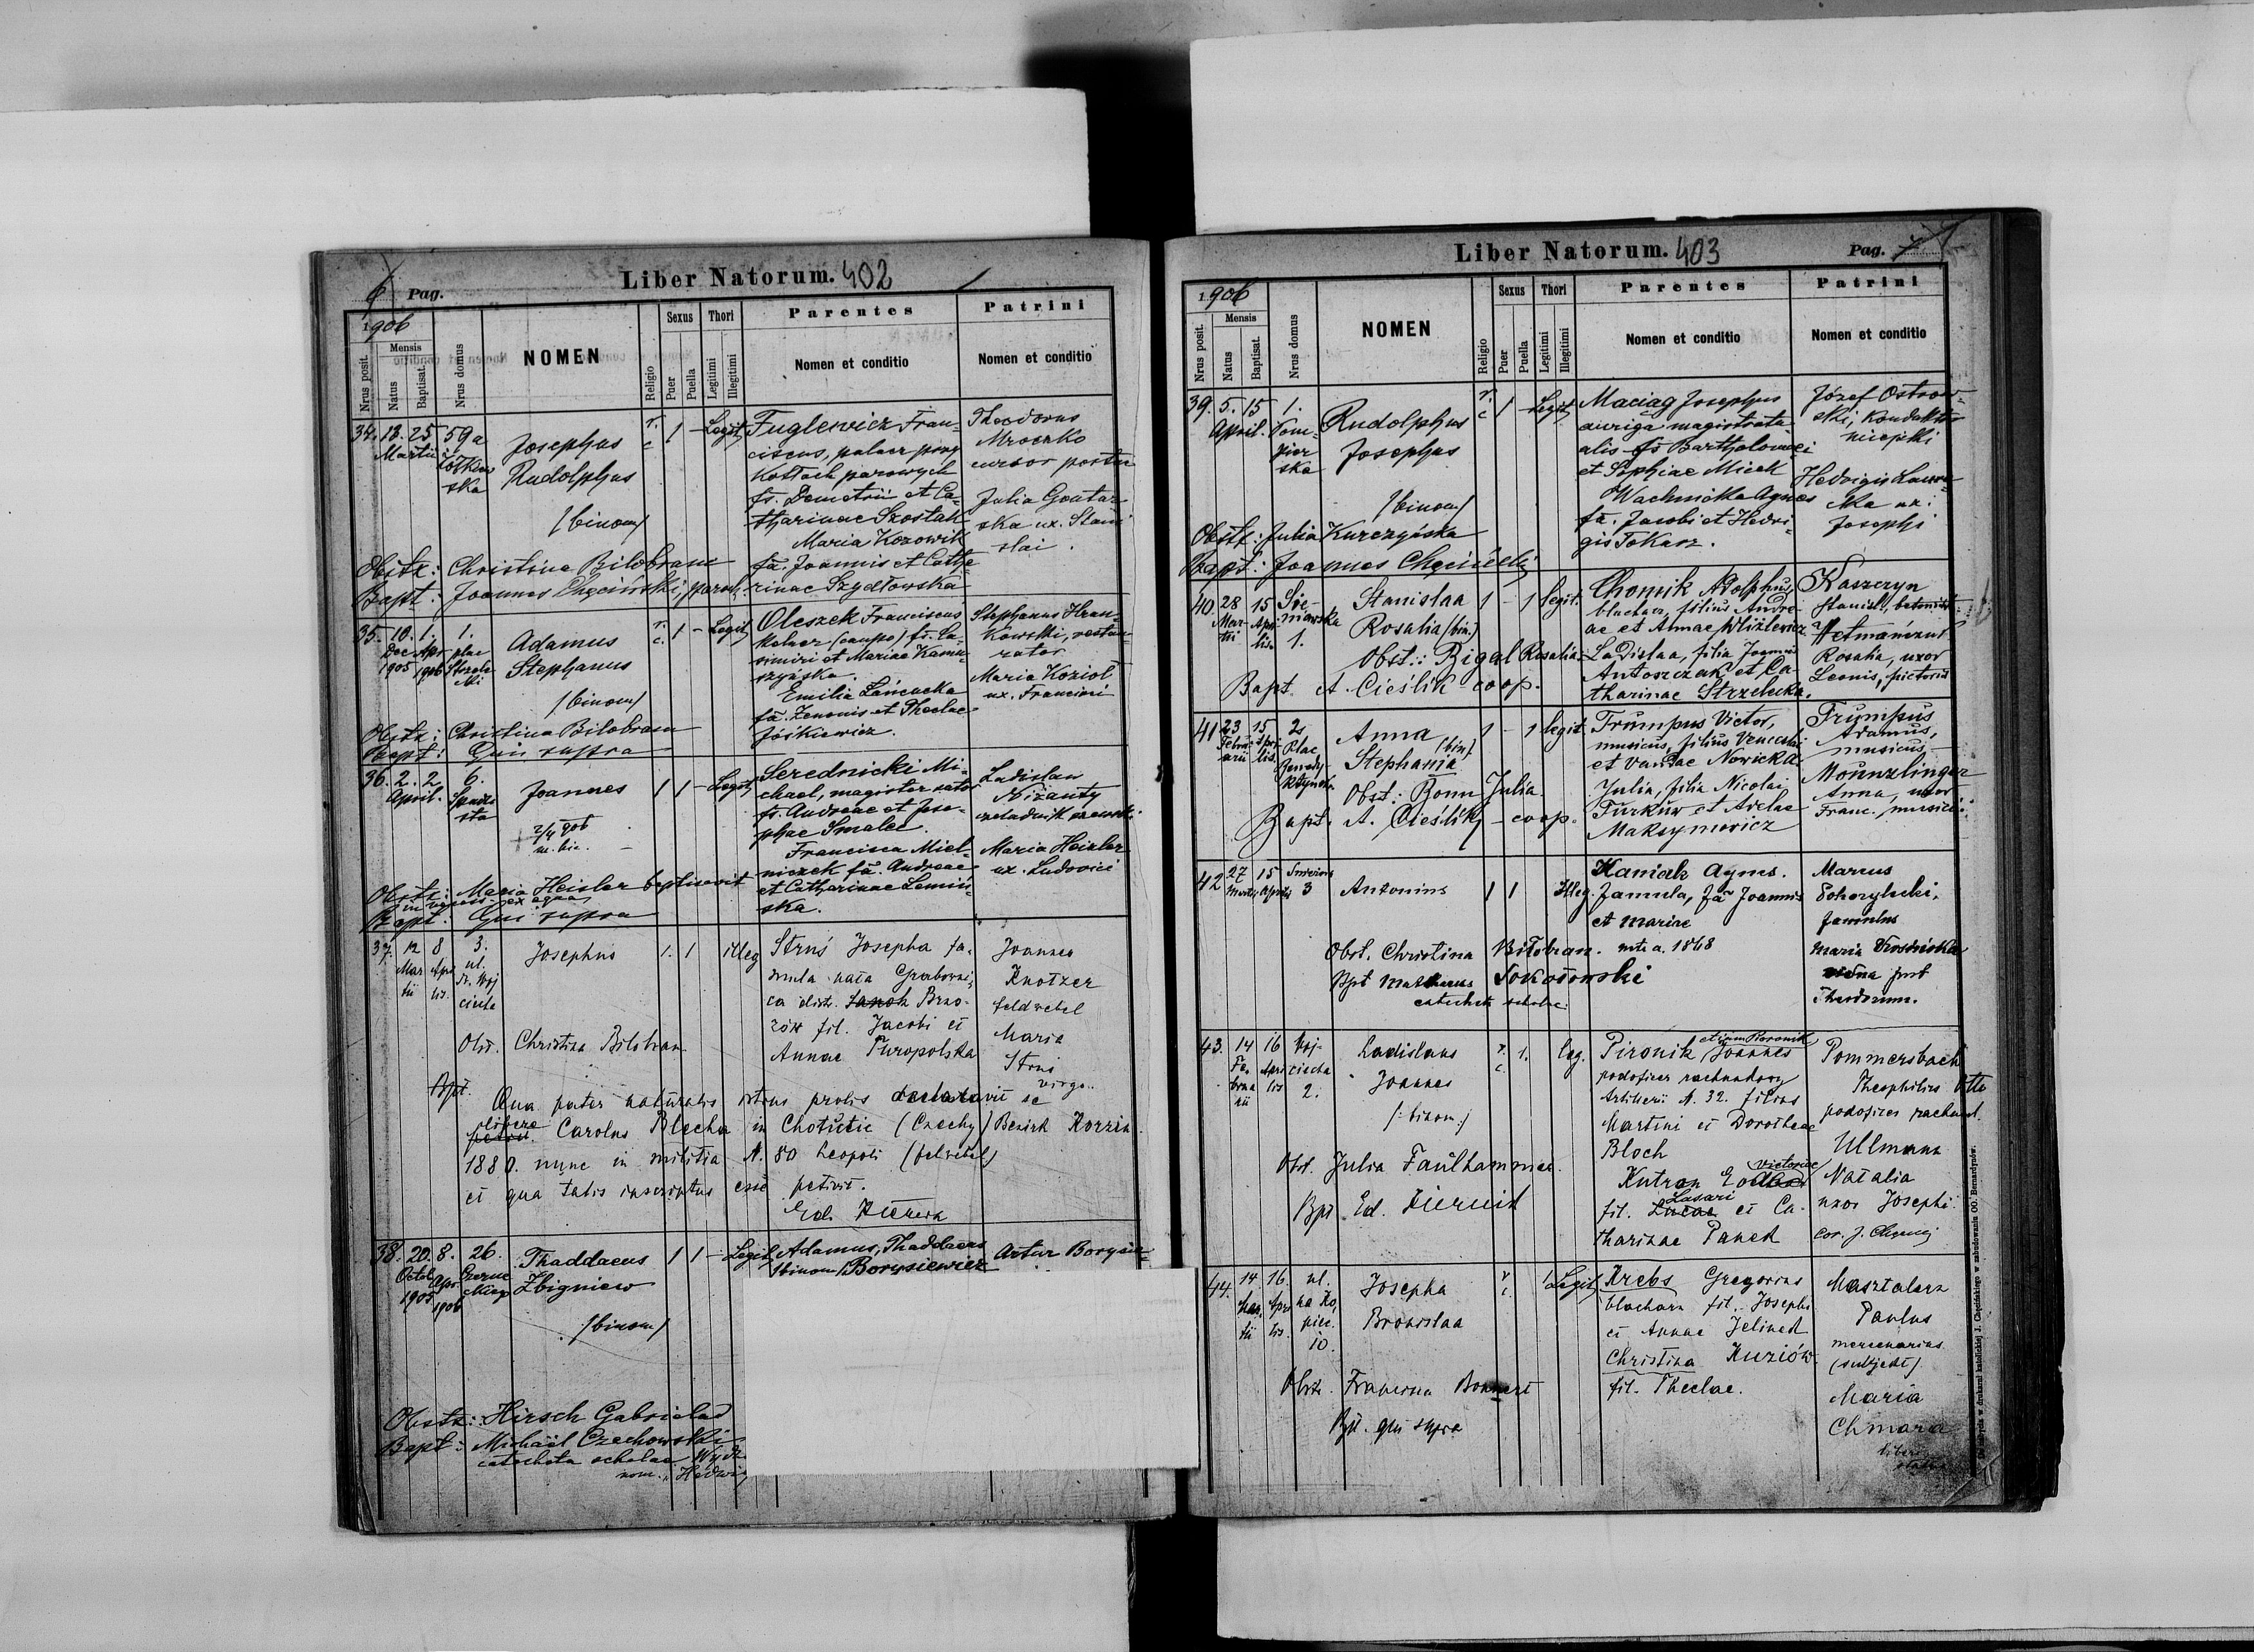 6 Pag.
Liber Natorum. 402
1906
Nrus posit.
Mensis
Natus
Baptisat.
Nrus domus
NOMEN
Religio
Sexus
Puer
Puella
Thori
Legitimi
Illegitimi
Parentes
Nomen et conditio
Patrini
Nomen et conditio
34. 13. 25 59a
Martii
Żółkiewska
Josephus
Rudolphus
/binom/
r. c. 1 - Legit.
Fuglewicz Fran-
ciscus, palacz przy
kotłach parowych
fs. Demetrii et Ca-
tharinae Szostak
Maria Kozowik
fa. Joannis et Cathe-
rinae Szydłowska
Theodorus
Mroczko
cursor postar
Julia Gontar-
ska ux. Stani-
slai.
Obstx: Christina Bilobram
Bapt: Joannes Chęciński, paroch.
35. 10. 1. 1.
Dec. Apr. plac
1905 1906 Strzele-
cki
Adamus
Stephanus
/binom/
r. c. 1 - Legit.
Oleszek Franciscus
kelner (caupo) fs. Ca-
simiri et Mariae Kamu-
szyńska.
Emilia Łańcucka
fa. Zenonis et Theclae
Jóśkiewicz.
Stephanus Kran-
kowski, restau-
rator
Maria Kozioł
ux. Francisci
Obstx: Christina Bilobram
Bapt: Qui supra
36. 2. 2 6.
April.
Joannes
+ 2/4 906
1 1 - Legit.
Serednicki Mi-
chael, magister sutor
fs. Andreae et Jose-
phae Smalec.
Francisca Miel-
niczek fa. Andreae
et Catharinae Lemiń-
ska.
Ladislau
Niżanty
czeladnik szewski
Maria Heizler
ux. Ludovici
Obstx: Maria Heisler baptisavit
Bapt: Qui supra
37. 12 8 3.
Mar- Apri- ul.
tii lis. św. Woj-
ciecha
Josephus
1. 1 illeg
Struś Josepha fa-
mula nata Grabowni-
ca distr. Sanok Brzo-
zów fil. Jacobi et
Annae Turopolska
Joannes
Knotzer
feldwebel
Maria
Struś
virgo.
Obst. Christina Bilobram
Bpt.
Qua pater naturalis istius prolis declaravit se
libere
Carolus Blecha in Chotutic (Czechy) Bezirk Korzin
1880. nunc in militia N. 80 Leopoli (felwebel)
et qua talis inscriptus esse petivit.
Ed.
38. 20. 8. 26.
Octob. Apr. Czarnec-
1905 1906 kiego
Thaddaeus
Zbigniew
/binom/
1 1 - Legit.
Adamus, Thaddaeus
/binom/ Borysiewicz
Artur Borysie-
Obstx: Hirsch Gabriela
Bapt: Michaël Czechowski
catecheta scholae Wydz.
nom. Hedwig
Liber Natorum. 403
Pag. 7
1906
Nrus posit.
Mensis
Natus
Baptisat.
Nrus domus
NOMEN
Religio
Sexus
Puer
Puella
Thori
Legitimi
Illegitimi
Parentes
Nomen et conditio
Patrini
Nomen et conditio
39. 5. 15 1.
April.
Rudolphus
Josephus
/binom/
r. c 1 - Legit.
Maciąg Josephus
auriga magistratu-
alis fs Bartholomaei
et Sophiae Micek
Wachnicka Agnes
fa. Jacobi et Hedvi-
gis Tokarz.
Józef Ostrow-
ski, konduktor
miejski
Hedvigis
ux.
Josephi
Obstx: Julia Kurczyńska
Bapt: Joannes Chęciński
40. 28 15
Mar- Apri-
tii lis 1.
Stanislaa
Rosalia /bin./
1 - 1 legit.
Chomik Adolphus
blacharz, filius Andre-
ae et Annae Wliźlewicz
Ladislaa, filia Joannis
Antoszczak et Ca-
tharinae Strzelecka.
Kaszczyn
Stanisl., betoniste
Hetmańczuk
Rosalia, uxor
Leonis, pictoris
Obst.: Bigal Rosalia
Bapt. A. Cieślik - coop.
41 23 15 2
Febru- Apri- Plac
arii lis.
Anna
Stephania /bin/
1 - 1 legit.
Trumpus Victor,
musicus, filius Venceslai
et Vandae Novicka.
Julia, filia Nicolai
Turkuw et Adelae
Maksymowicz
Trumpus
Adamus,
musicus,
Mounzlinger
Anna, uxor
Franc., musici
Obst: Bonn Julia.
Bapt. A. Cieślik - coop.
42 27 15
Martii Aprilis 3
Antonius
1 1 Illeg.
Kaniak Agnes.
Famula, fa Joannis
et Mariae
nta a. 1868
Marcus
famulus
Maria
Theodorum.
Obst. Christina Bilobran.
Bpt Matheus Sokołowski
catecheta scholae
43. 14 16 Woj-
Fe- Apri- ciecha
brua- lis 2.
rii
Ladislaus
Joannes
/:binom:/
r. c. 1. leg.
Pironik Joannes
podoficer rachunkowy
Artillerii N. 32. filius
Martini et Dorotheae
Bloch
Kutran
Victoriae
fil. Lasari et Ca-
tharinae Panek
Pommersbach
Theophilus Otto
podoficer rachunk.
Ullmann
Natalia
uxor Josephi
Obst. Julia Faulhammer.
Bpt Ed.
44. 14 16. ul.
Mar- Apri- na Ko-
tii lis. piec.
10.
Josepha
Bronislaa
r. c. 1 Legit.
Krebs Gregorius
blacharz fil. Josephi
et Annae Jelinek
Christina Kuziów
fil. Theclae.
Masztalerz
Paulus
mercenarius
(subjekt).
Maria
Chmara
Obstx. Francisca Bonnert
Bpt. qui supra
Do nabycia w drukarni katolickiej J. Chęcińskiego w zabudowaniu OO. Bernardynów.